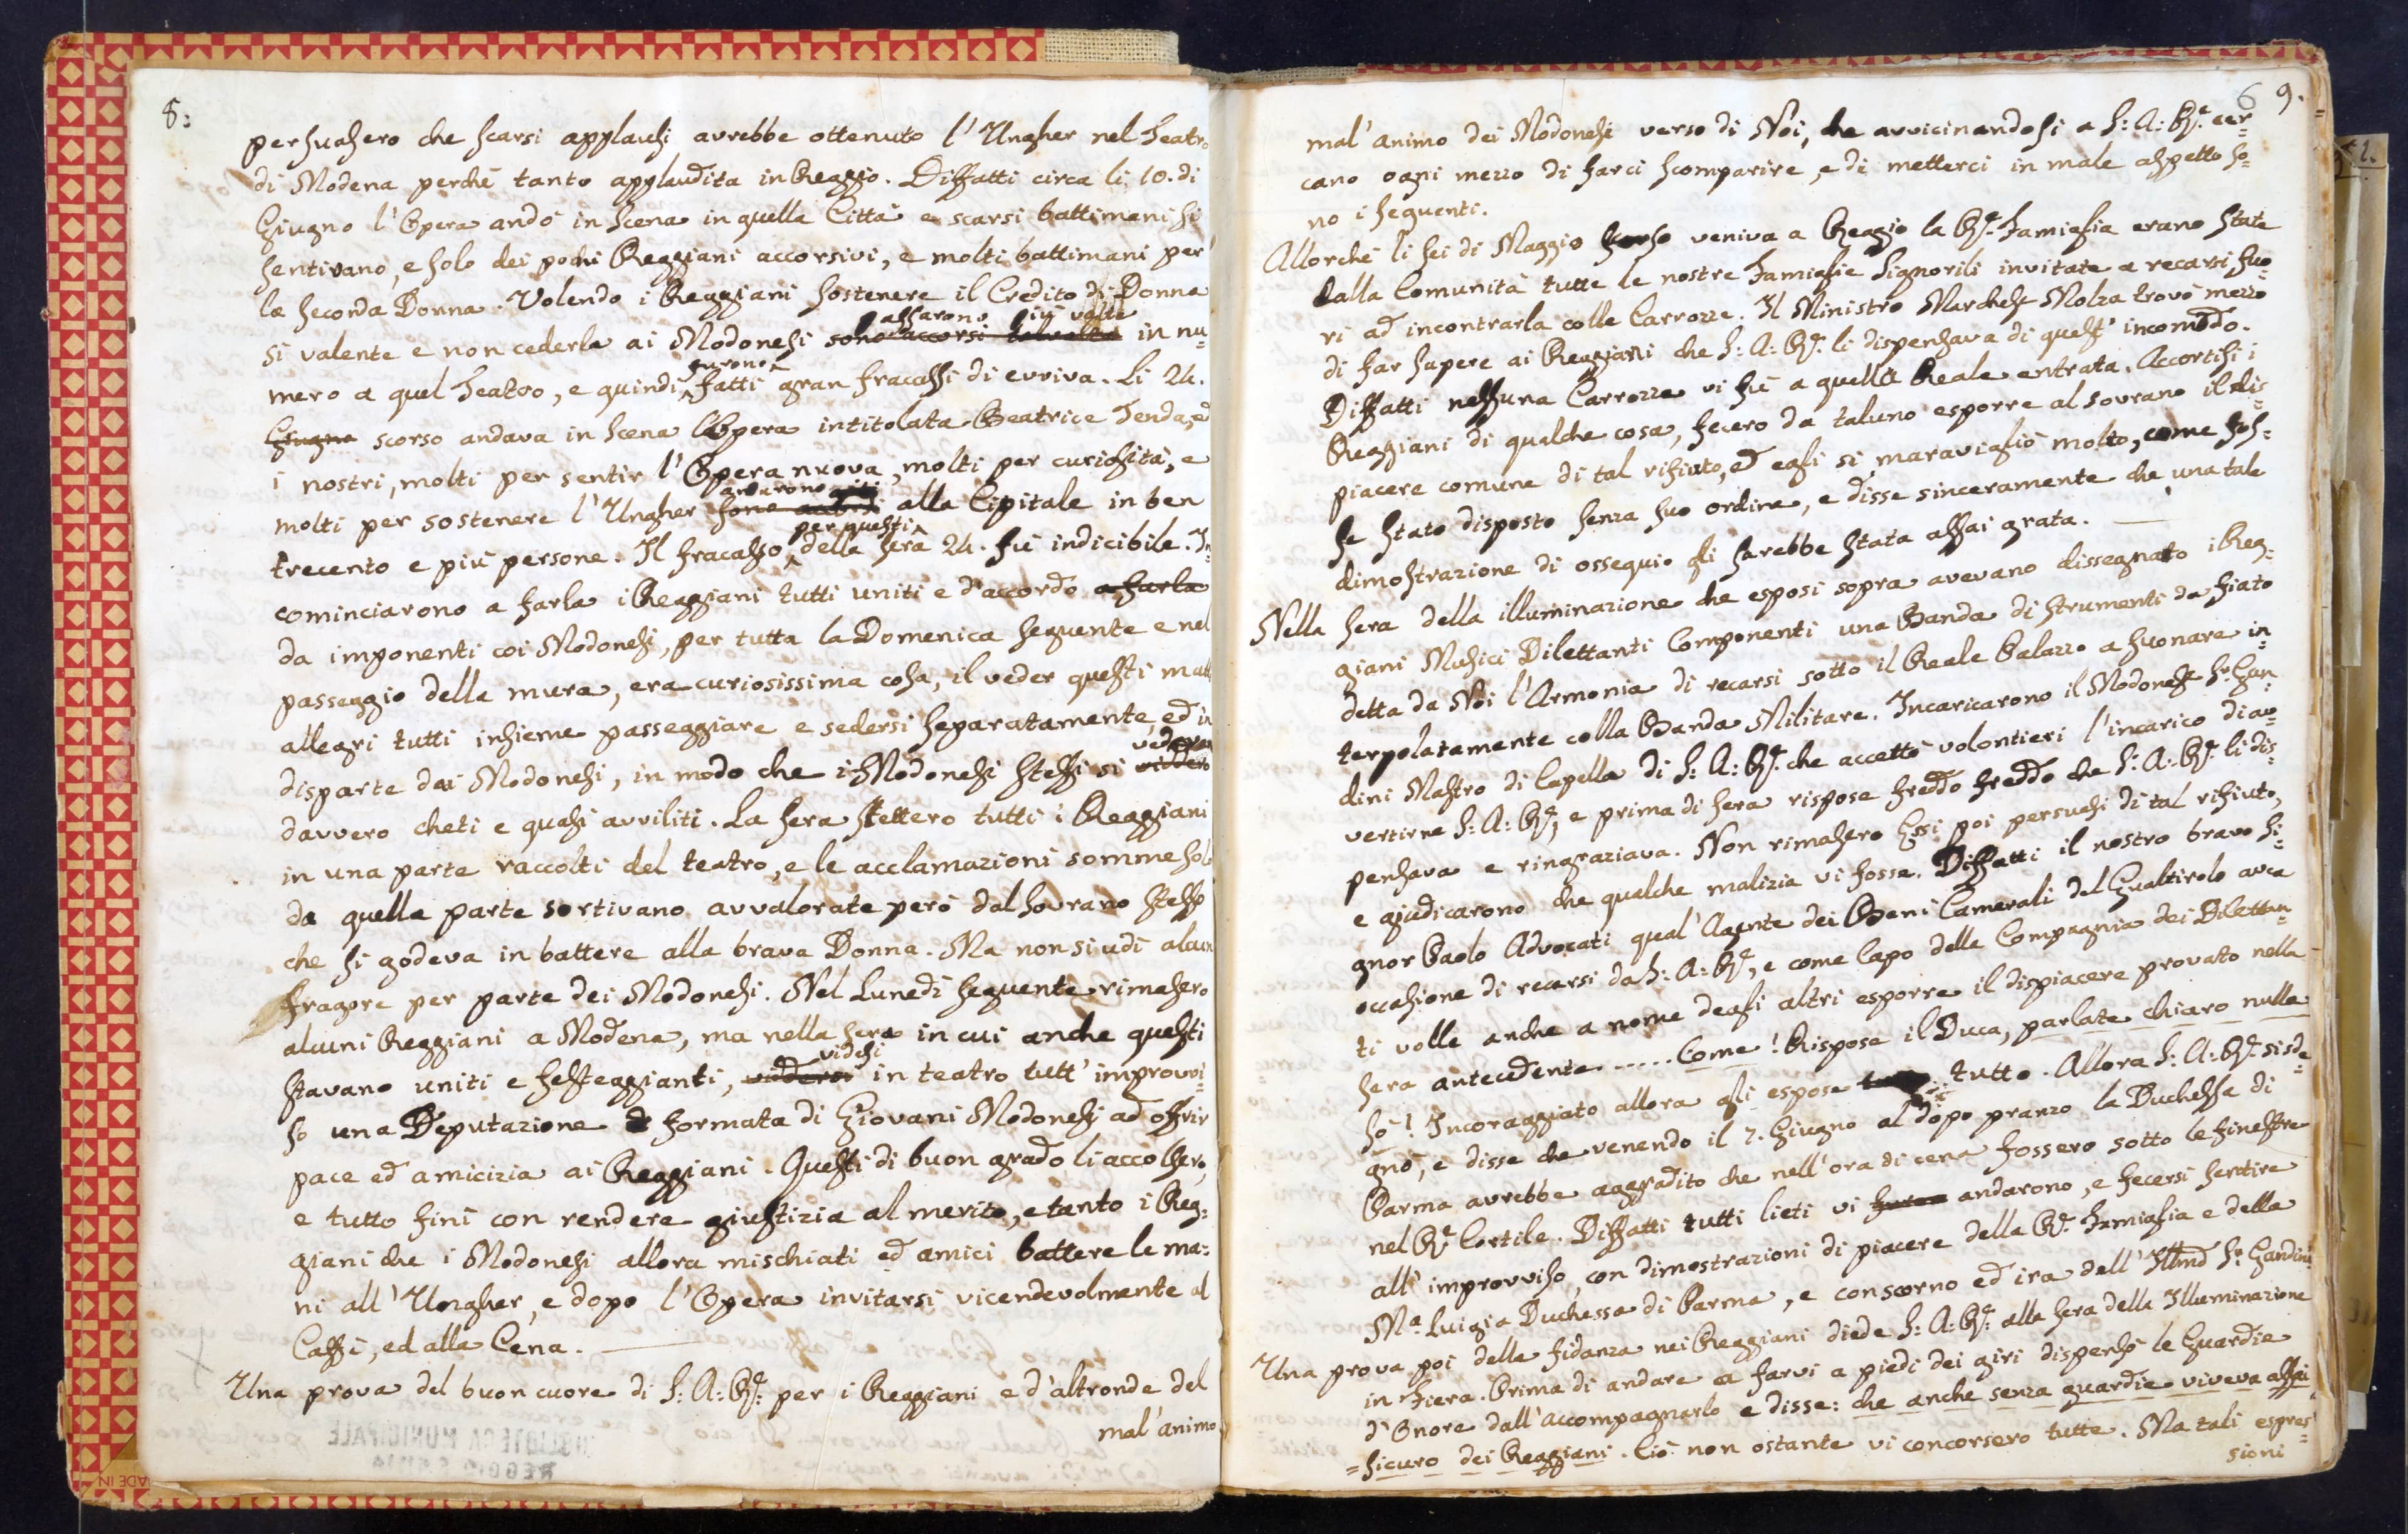 8:
persuasero che scarsi applausi avrebbe ottenuto l'Ungher nel Teatro
di Modena perchè tanto applaudita in Reggio. Diffatti circa li 10. di
Giugno l'Opera andò in Scena in quella Città e scarsi battimani si
sentivano, e solo dei pochi Reggiani accorsivi, e molti battimani per
la seconda Donna. Volendo i Reggiani sostenere il Credito di Donna
affarono in volta
si valente e non cederla ai Modonesi sono accorsi talvolta in nu=
furono
mero a quel Teatro, e quindi fatti gran fracassi di evviva. Li 24.
Giugno scorso andava in Scena l'Opera intitolata Beatrice Tenda, ed
i nostri, molti per sentir l'Opera nuova, molti per curiosità, e
andarono
molti per sostenere l'Ungher sono alla Cipitale in ben
per questi
trecento e più persone. Il fracasso della sera 24. fù indicibile. In=
cominciarono a farla i Reggiani tutti uniti e d'accordo a farla
da imponenti coi Modonesi, per tutta la Domenica seguente e nel
passeggio delle mura, era curiosissima cosa, il veder questi matti
allegri tutti insieme passeggiare e sedersi separatamente, ed in
disparte dai Modonesi, in modo che i Modonesi stessi si viddero
davvero cheti e quasi avviliti. La sera stettero tutti i Reggiani
in una parte raccolti del teatro, e le acclamazioni somme solo
da quella parte sortivano avvalorate però dal Sovrano stesso
che si godeva in battere alla brava Donna. Ma non si udì alcun
fragore per parte dei Modonesi. Nel Lunedì seguente rimasero
alcuni Reggiani a Modena, ma nella sera in cui anche questi
videsi
stavano uniti e festeggianti, viddersi in teatro tutt'improvvi=
so una Deputazione formata di Giovani Modonesi ad offrir
pace ed amicizia ai Reggiani. Questi di buon grado li accolsero,
e tutto finì con rendere giustizia al merito, e tanto i Reg=
giani che i Modonesi allora mischiati ed amici battere le ma=
ni all'Ungher, e dopo l'Opera invitarsi vicendevolmente al
Caffè, ed alla Cena.
Una prova del buon cuore di S: A: R.e: per i Reggiani e d'altronde del
mal'animo
6 9.
mal'animo dei Modonesi verso di Noi, che avvicinandosi a S: A: R.e cer=
cano ogni mezzo di farci scomparire, e di metterci in male aspetto so=
no i seguenti.
Allorchè li sei di Maggio scorso veniva a Reggio la R.e Famiglia erano state
dalla Comunità tutte le nostre Famiglie Signorili invitate a recarsi fuo=
ri ad incontrarla colle Carrozze. Il Ministro Marchese Molza trovò mezzo
di far sapere ai Reggiani che S: A: R.e: li dispensava di quest'incomodo.
Diffatti nessuna Carrozza vi fù a quella Reale entrata. Accortisi i
Reggiani di qualche cosa, fecero da taluno esporre al Sovrano il dis=
piacere comune di tal rifiuto, ed egli si maravigliò molto, come fos=
se stato disposto senza suo ordine, e disse sinceramente che una tale
dimostrazione di ossequio gli sarebbe stata assai grata.
Nella sera della illuminazione che esposi sopra avevano dissegnato i Reg=
giani Musici Dilettanti Componenti una Banda di strumenti da fiato
detta da Noi l'Armonia di recarsi sotto il Reale Palazzo a suonare in=
terpolatamente colla Banda Militare. Incaricarono il Modonese S.r Gan=
dini Mastro di Capella di S: A: R.e: che accettò volontieri l'incarico di av=
vertirne S: A: R.e, e prima di sera rispose freddo freddo che S: A: R.e: li dis=
pensava e ringraziava. Non rimasero Essi poi persuasi di tal rifiuto,
e giudicarono che qualche malizia vi fosse. Diffatti il nostro bravo Si=
gnor Paolo Advocati qual'Agente dei Beni Camerali del Gualtirolo avea
occasione di recarsi da S: A: R.e, e come Capo della Compagnia dei Dilettan=
ti volle anche a nome degli altri esporre il dispiacere provato nella
sera antecedente ..... Come! Rispose il Duca, parlate chiaro nulla
sò! Incoraggiato allora gli espose tutto. Allora S: A: R.e: si sde=
gnò, e disse che venendo il 7. Giugno al dopo pranzo la Duchessa di
Parma avrebbe aggradito che nell'ora di cena fossero sotto le finestre
nel R.e Cortile. Diffatti tutti lieti vi andarono, e fecersi sentire
all'improvviso, con dimostrazioni di piacere della R.e: Famiglia e della
M.a Luigia Duchessa di Parma, e con scorno ed ira dell'Illmo S.r Gandini
Una prova poi della fidanza nei Reggiani diede S: A: R.e: alla sera della Illuminazione
in Fiera. Prima di andare a farvi a piedi dei giri dispensò le Guardie
d'Onore dall'accompagnarlo e disse: che anche senza guardie viveva assai
=sicuro dei Reggiani. Ciò non ostante vi concorsero tutte. Ma tali espres=
sioni
BIBLIOTECA MUNICIPALE
REGGIO EMILIA